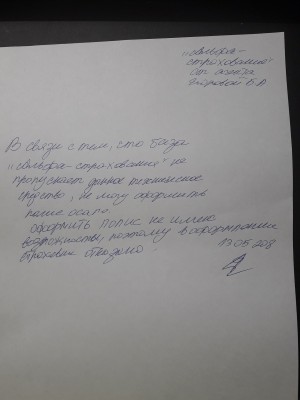 „Альфа-
страхование"
от агента
Егоровой В.А.
В связи с тем, что база
„Альфа-страхования" не
пропускает данное техническое
средство, не могу оформить
полис осаго
оформить полис не имею
возможности, поэтому в оформлении
страховки отказано
17.05.2018